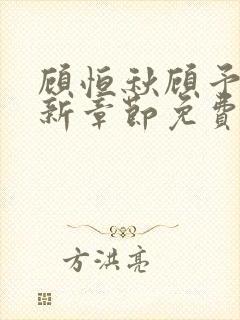 顾恒秋顾予
新章节免费
方洪亮